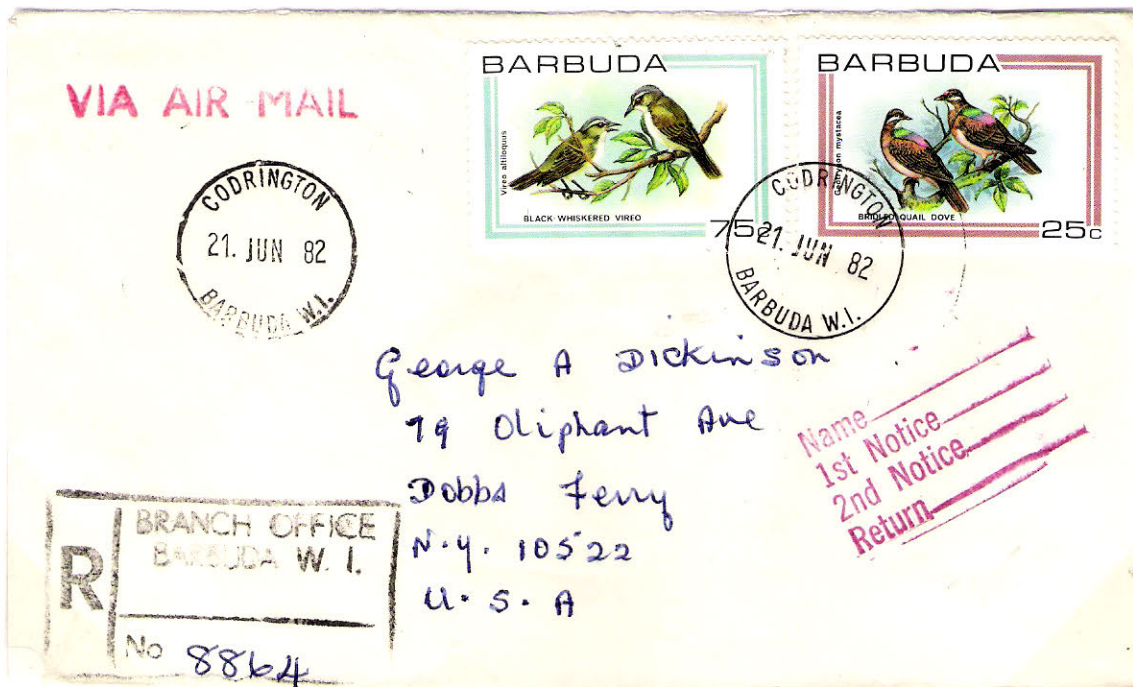 VIA AIR MAIL
BARBUDA
Vireo altiloquus
BLACK-WHISKERED VIREO
75c
BARBUDA
mystacea
BRIDLED QUAIL DOVE
25c
CODRINGTON
21. JUN 82
BARBUDA W.I.
CODRINGTON
21. JUN 82
BARBUDA W.I.
George A Dickinson
79 Oliphant Ave
Dobbs Ferry
N.Y. 10522
U.S.A
Name
1st Notice
2nd Notice
Return
R
BRANCH OFFICE
BARBUDA W. I.
No 8864